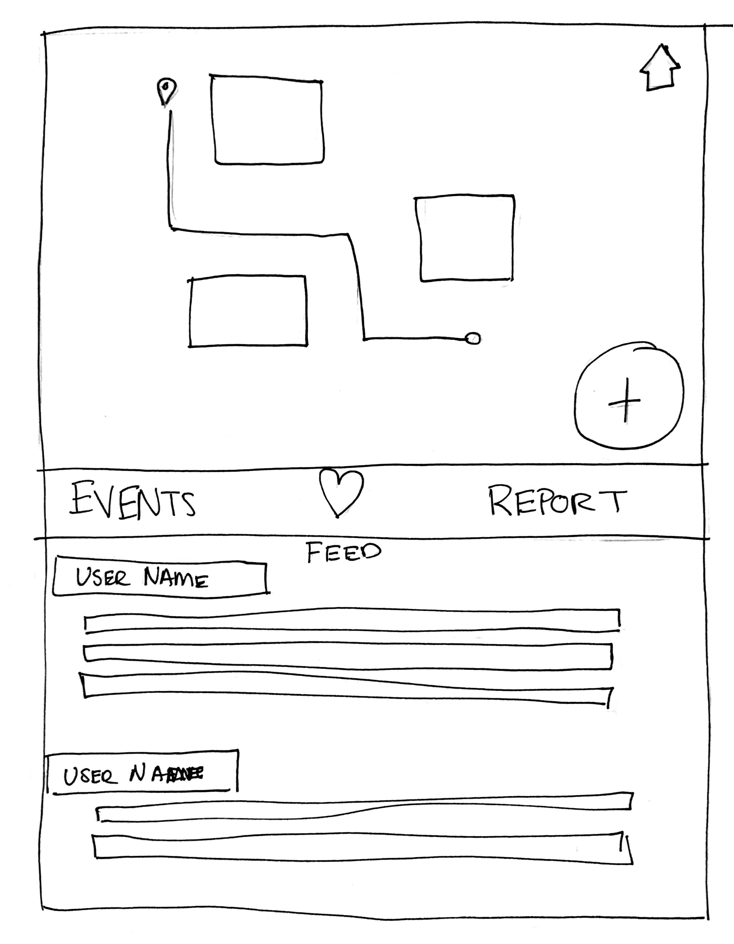 EVENTS REPORT
FEED
USER NAME
USER